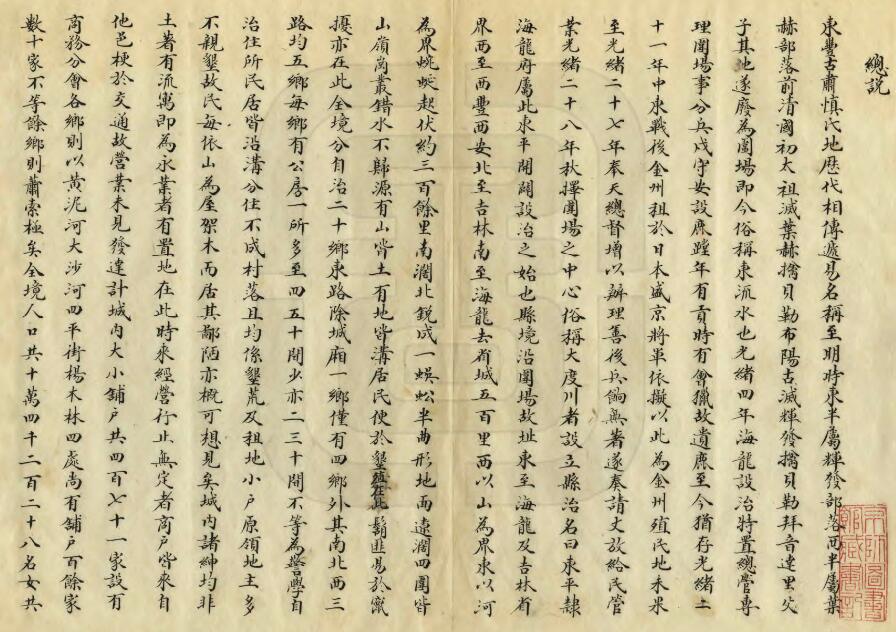 總説
東豐古肅愼氏地歷代相傳遞易名稱至明時東半屬輝發部落西半屬葉
赫部落前清國初太祖滅葉赫擒貝勒布陽古滅輝發擒貝勒拜音達里父
子其地遂廢為圍場即今俗稱東流水也光緒四年海龍設治特置總管專
理圍場事分兵戍守安設鹿蹚年有貢時有會獵故遺鹿至今猶存光緒二
十一年中東戰後金州租於日本盛京將軍依擬以此為金州殖民地未果
至光緒二十七年奉天總督增以辦理善後兵餉無著遂奉請丈放給民管
業光緒二十八年秋擇圍場之中心俗稱大度川者設立縣治名曰東平隸
海龍府屬此東平開闢設治之始也縣境沿圍場故址東至海龍及吉林省
界西至西豐西安北至吉林南至海龍去省城五百里西以山為界東以河
為界蜿蜒起伏約三百餘里南濶北銳成一蜈蚣半曲形地面遼濶四圍皆
山嶺崗叢錯水不歸源有山皆土有地皆溝居民便於墾植在此鬍匪易於竄
擾亦在此全境分自治二十鄉東路除城廂一鄉僅有四鄉外其南北西三
路均五鄉每鄉有公房一所多至四五十間少亦二三十間不等為警學自
治住所民居皆沿溝分住不成村落且均係墾荒及租地小戶原領地主多
不親墾故民每依山為屋架木而居其鄙陋亦概可想見矣城内諸紳均非
土著有流寓即為永業者有置地在此時來經營行止無定者商戶皆來自
他邑梗於交通故營業未見發達計城内大小鋪戶共四百七十一家設有
商務分會各鄉則以黃泥河大沙河四平街楊木林四處尚有鋪戶百餘家
數十家不等餘鄉則蕭索極矣全境人口共十萬四千二百二十八名女共